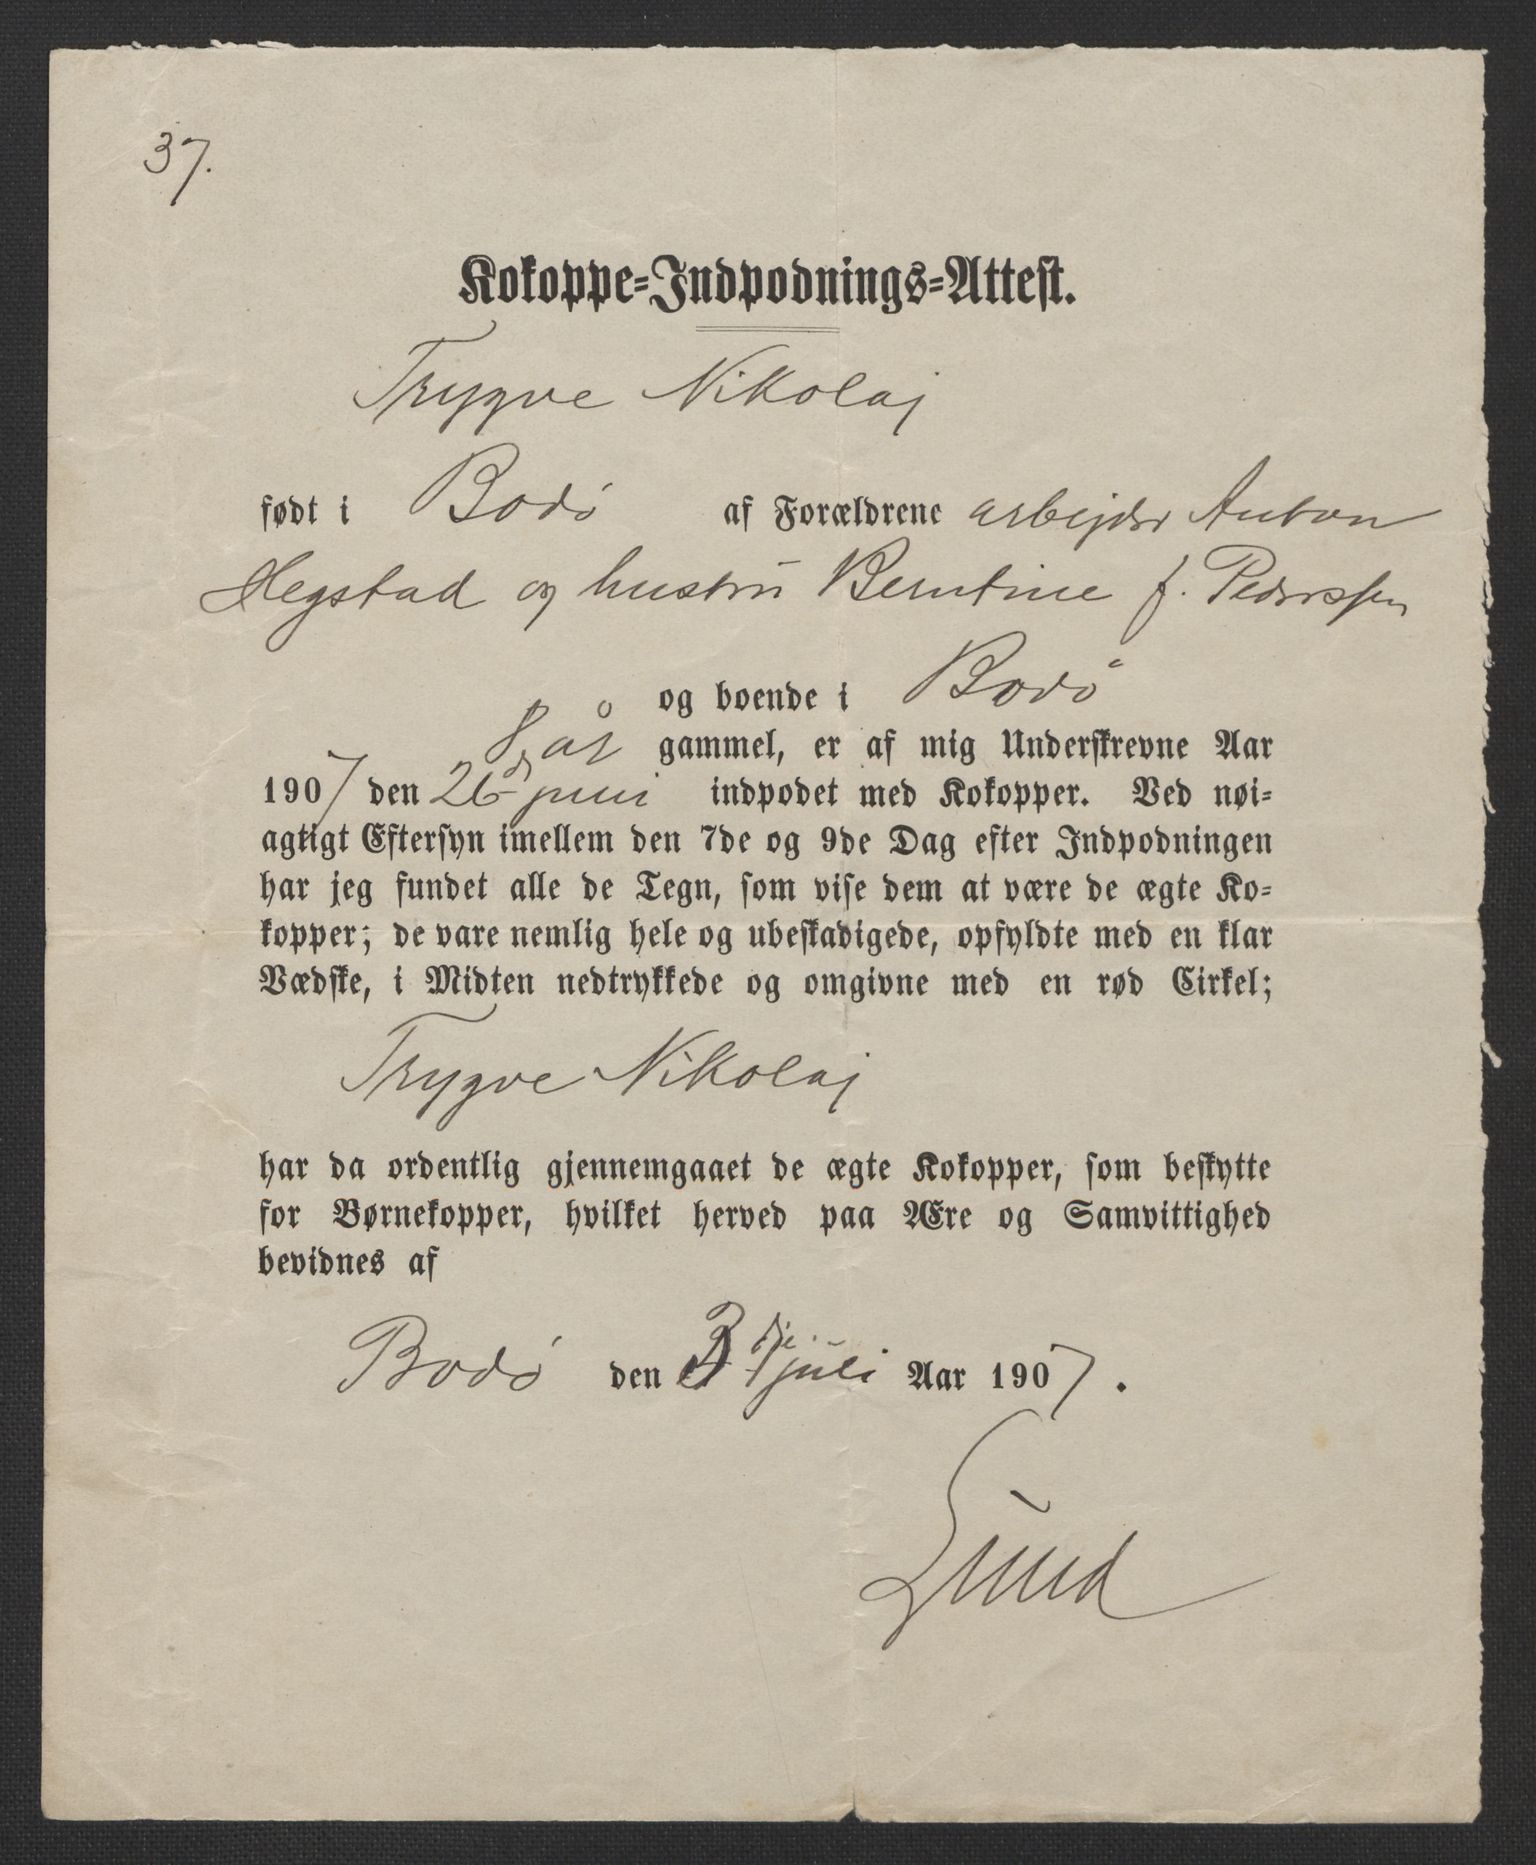 37.
Kokoppe-Indpodnings-Attest.
Trygve Nikolaj
født i Bodø af Forældrene arbejder Anton
Hegstad og hustru Berntine f. Pederssen
og boende i Bodø
8 år gammel, er af mig Underskrevne Aar
1907 den 26 juni indpodet med Kokopper. Ved nøi-
agtigt Eftersyn imellem den 7de og 9de Dag efter Indpodningen
har jeg fundet alle de Tegn, som vise dem at være de ægte Ko-
kopper; de vare nemlig hele og ubeskadigede, opfyldte med en klar
Vædske, i Midten nedtrykkede og omgivne med en rød Cirkel;
Trygve Nikolaj
har da ordentlig gjennemgaaet de ægte Kokopper, som beskytte
for Børnekopper, hvilket herved paa Ære og Samvittighed
bevidnes af
Bodø den 3dje juli Aar 1907.
Lund